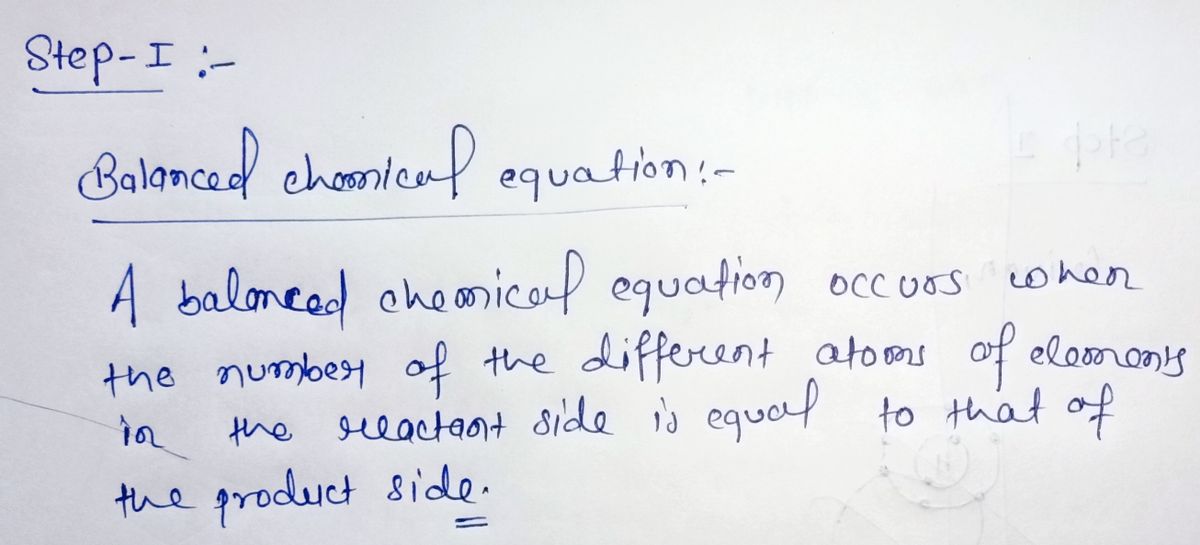 Step-I :-
Balanced chemical equation:-
A balanced chemical equation occurs when
the number of the different atoms of elements
in the reactant side is equal to that of
the product side.